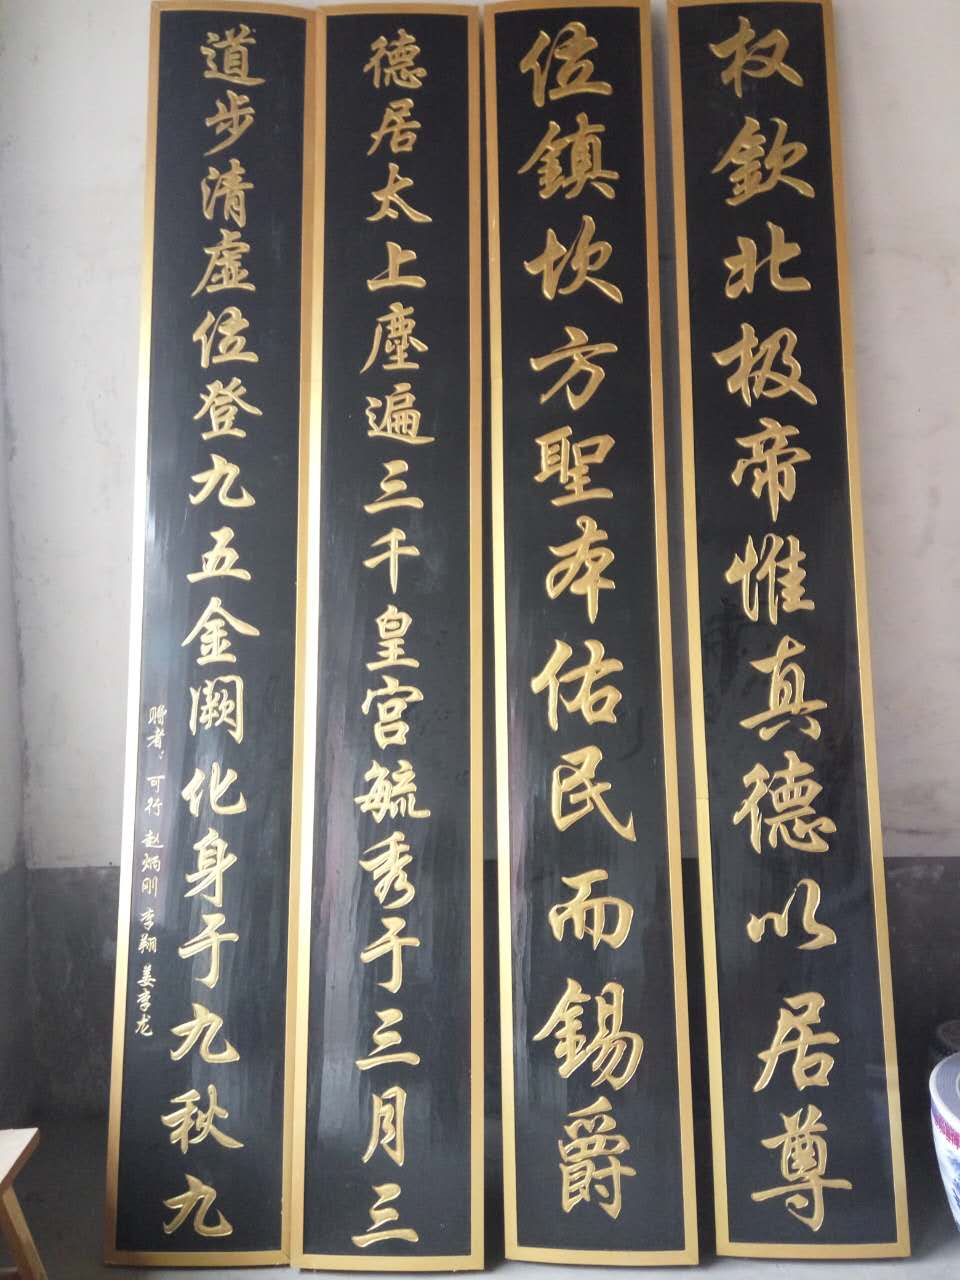 权钦北极帝惟真德以居尊
位鎮坎方聖本佑民而锡爵
德居太上塵遍三千皇宫毓秀于三月三
道步清虚位登九五金阙化身于九秋九
赠者：可行 赵炳刚 李翔 姜李龙